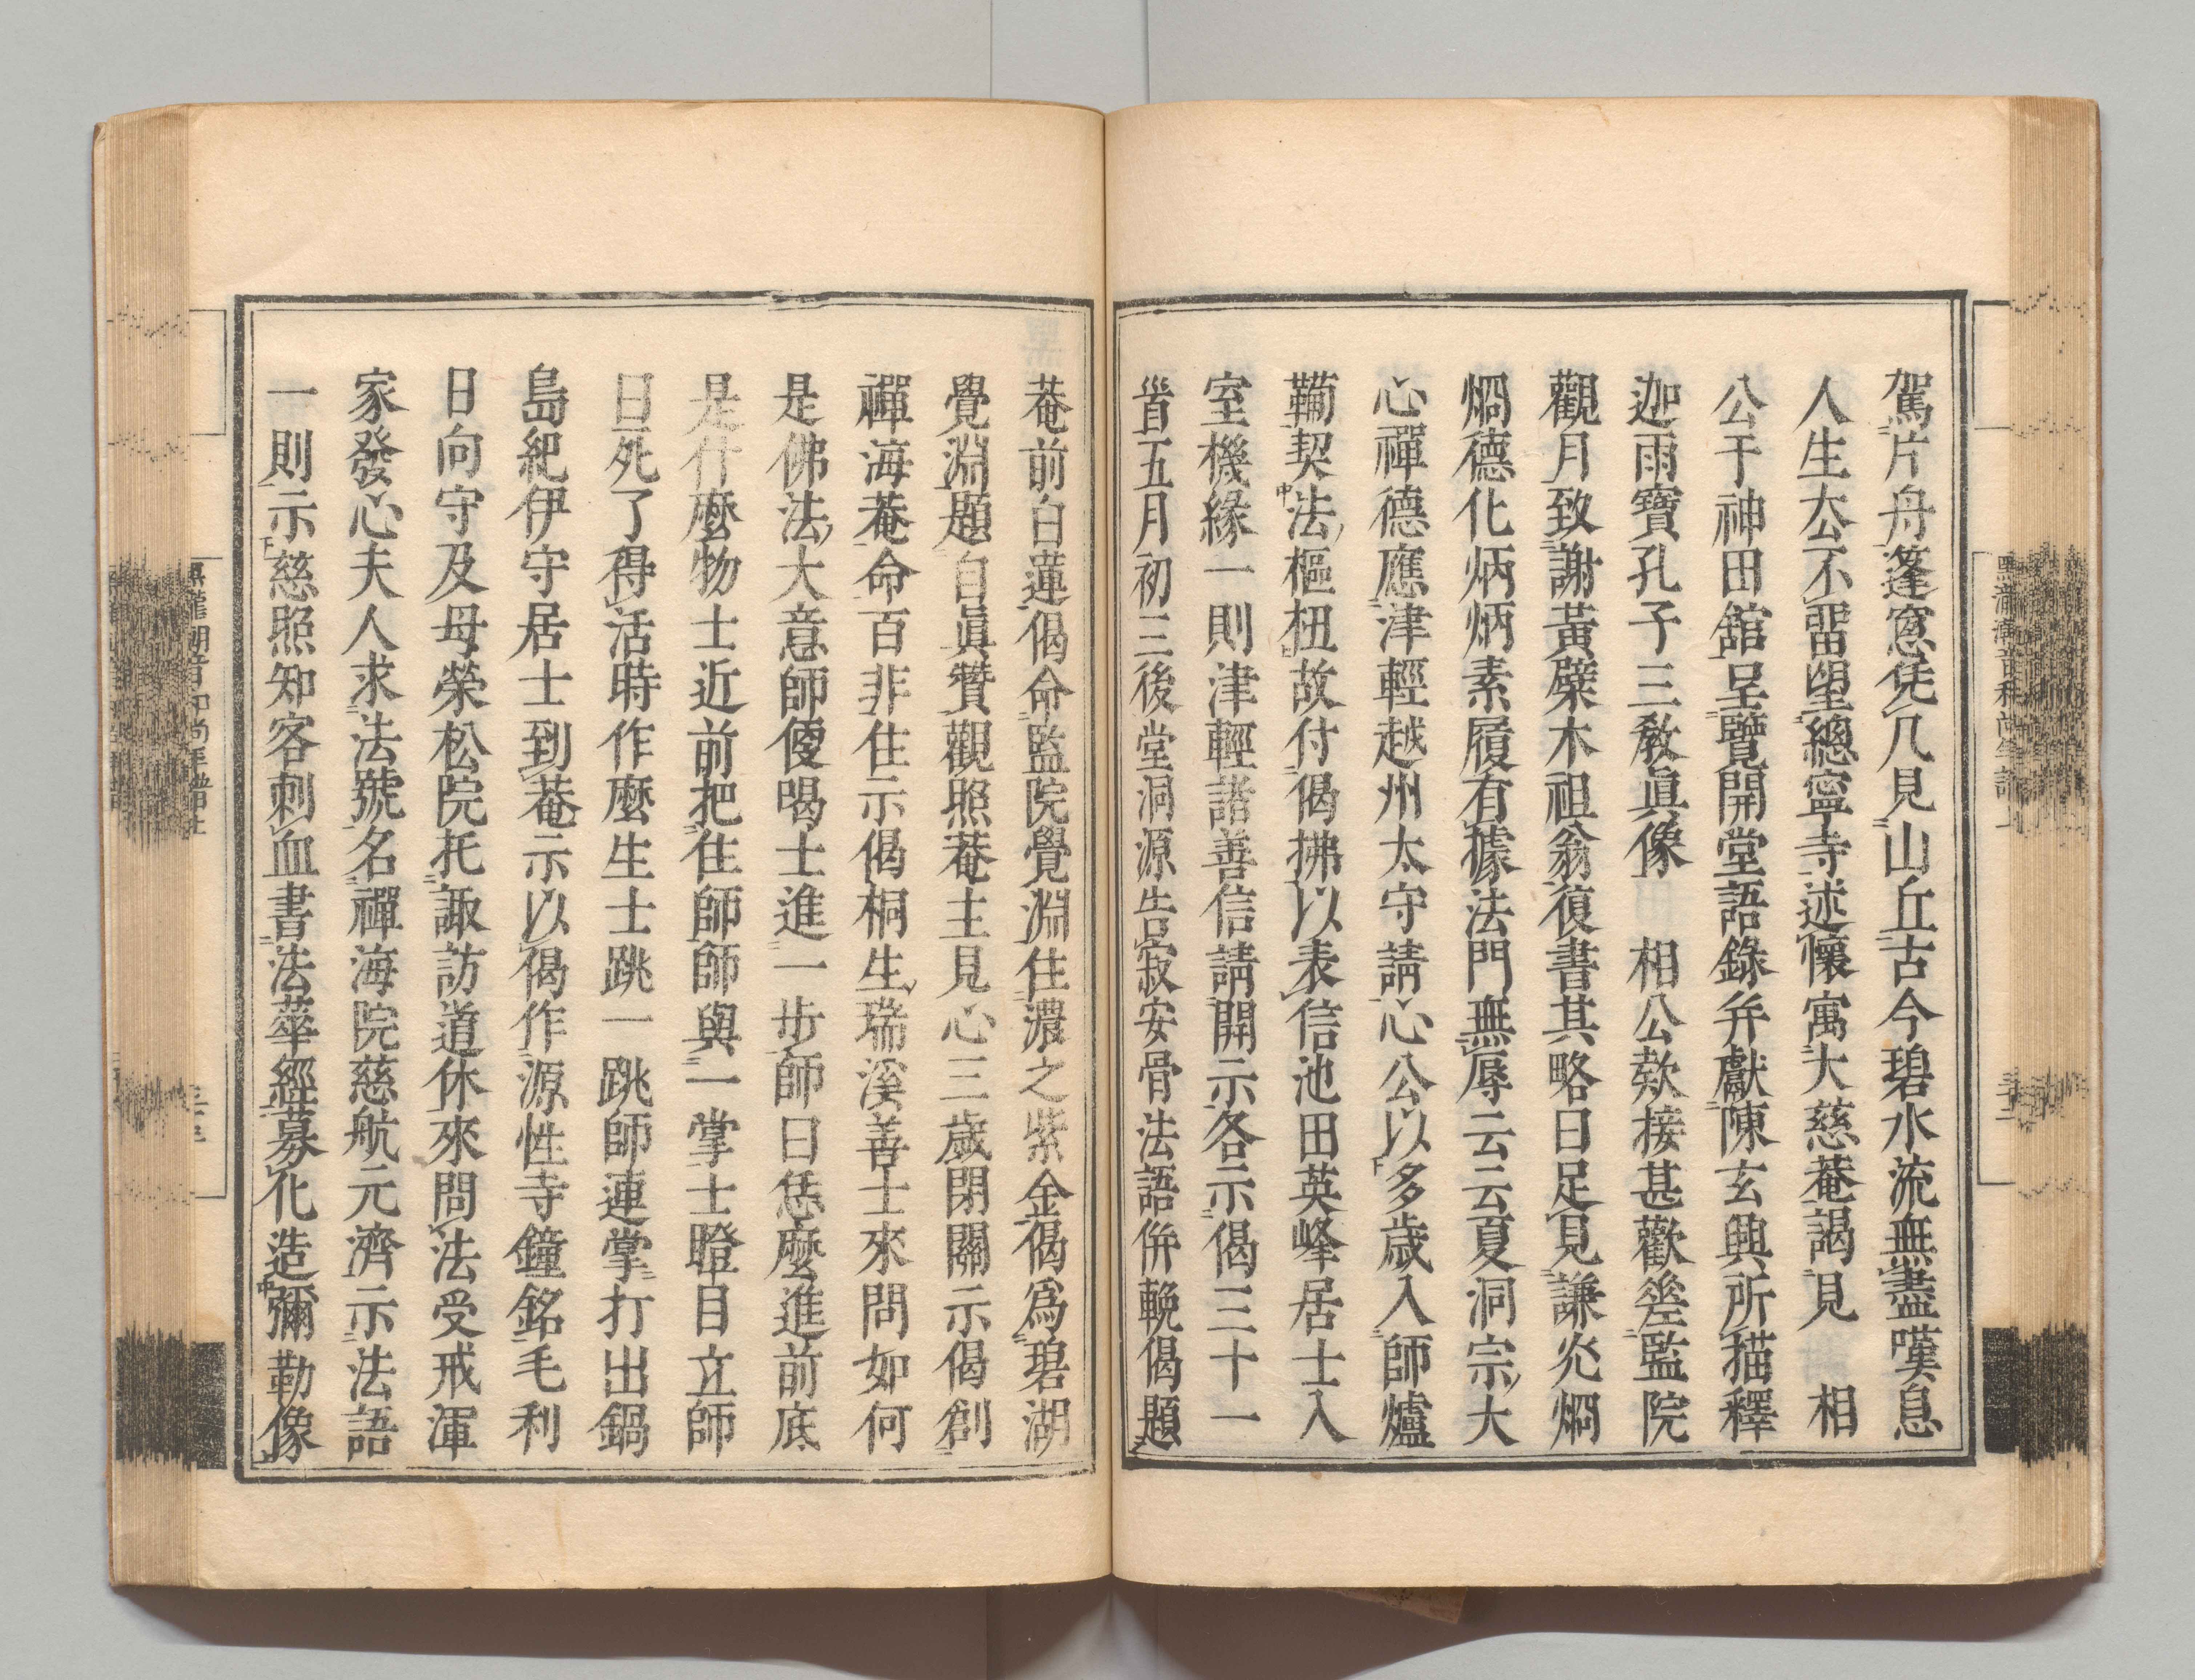 駕片舟篷窓凭几見山丘古今碧水流無盡嘆息
人生太不畱望總寧寺述懷寓大慈菴謁見 相
公于神田舘呈覽開堂語錄幷獻陳玄興所描釋
迦雨寶孔子三教眞像 相公欵接甚歡差監院
觀月致謝黃檗木祖翁復書其略曰足見謙光烱
烱德化炳炳素履有據法門無辱云云夏洞宗大
心禪德應津輕越州太守請心公以多歲入師爐
鞴契法樞杻故付偈拂以表信池田英峰居士入
室機緣一則津輕諸善信請開示各示偈三十一
首五月初三後堂洞源告寂安骨法語倂輓偈題
菴前白蓮偈命監院覺淵住濃之紫金偈爲碧湖
覺淵題自眞贊觀照菴主見心三歲閉關示偈創
禪海菴命百非住示偈桐生瑞溪善士來問如何
是佛法大意師便喝士進一步師曰恁麼進前底
是什麼物士近前把住師師與一掌士瞪目立師
曰死了得活時作麼生士跳一跳師連掌打出鍋
島紀伊守居士到菴示以偈作源性寺鐘銘毛利
日向守及母榮松院托諏訪道休來問法受戒渾
家發心夫人求法號名禪海院慈航元濟示法語
一則示慈照知客刺血書法華經募化造彌勒像